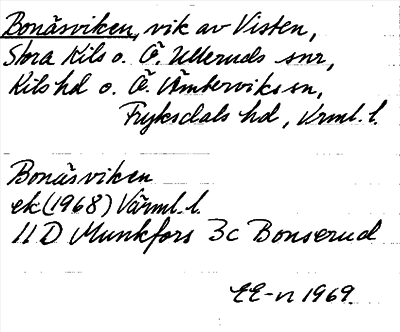 Bonäsviken, vik av Visten,
Stora Kils o. Ö. Ulleruds snr,
Kils hd o. Ö. Ämterviks sn,
Fryksdals hd, Vrml. l.
Bonäsviken
ek (1968) Värml. l.
11 D Munkfors 3c Bonserud
EE-n 1969.